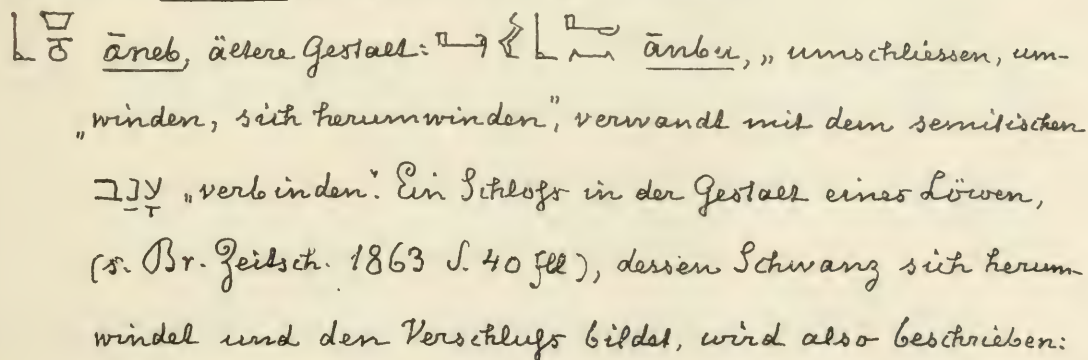 āneb, ältere Gestalt: ānbu, „umschliessen, um-
„winden, sich herumwinden", verwandt mit dem semitischen
עָנַב „verbinden". Ein Schloſs in der Gestalt eines Löwen,
(s. Br. Zeitsch. 1863 S. 40 fll), dessen Schwanz sich herum-
windet und den Verschluſs bildet, wird also beschrieben: